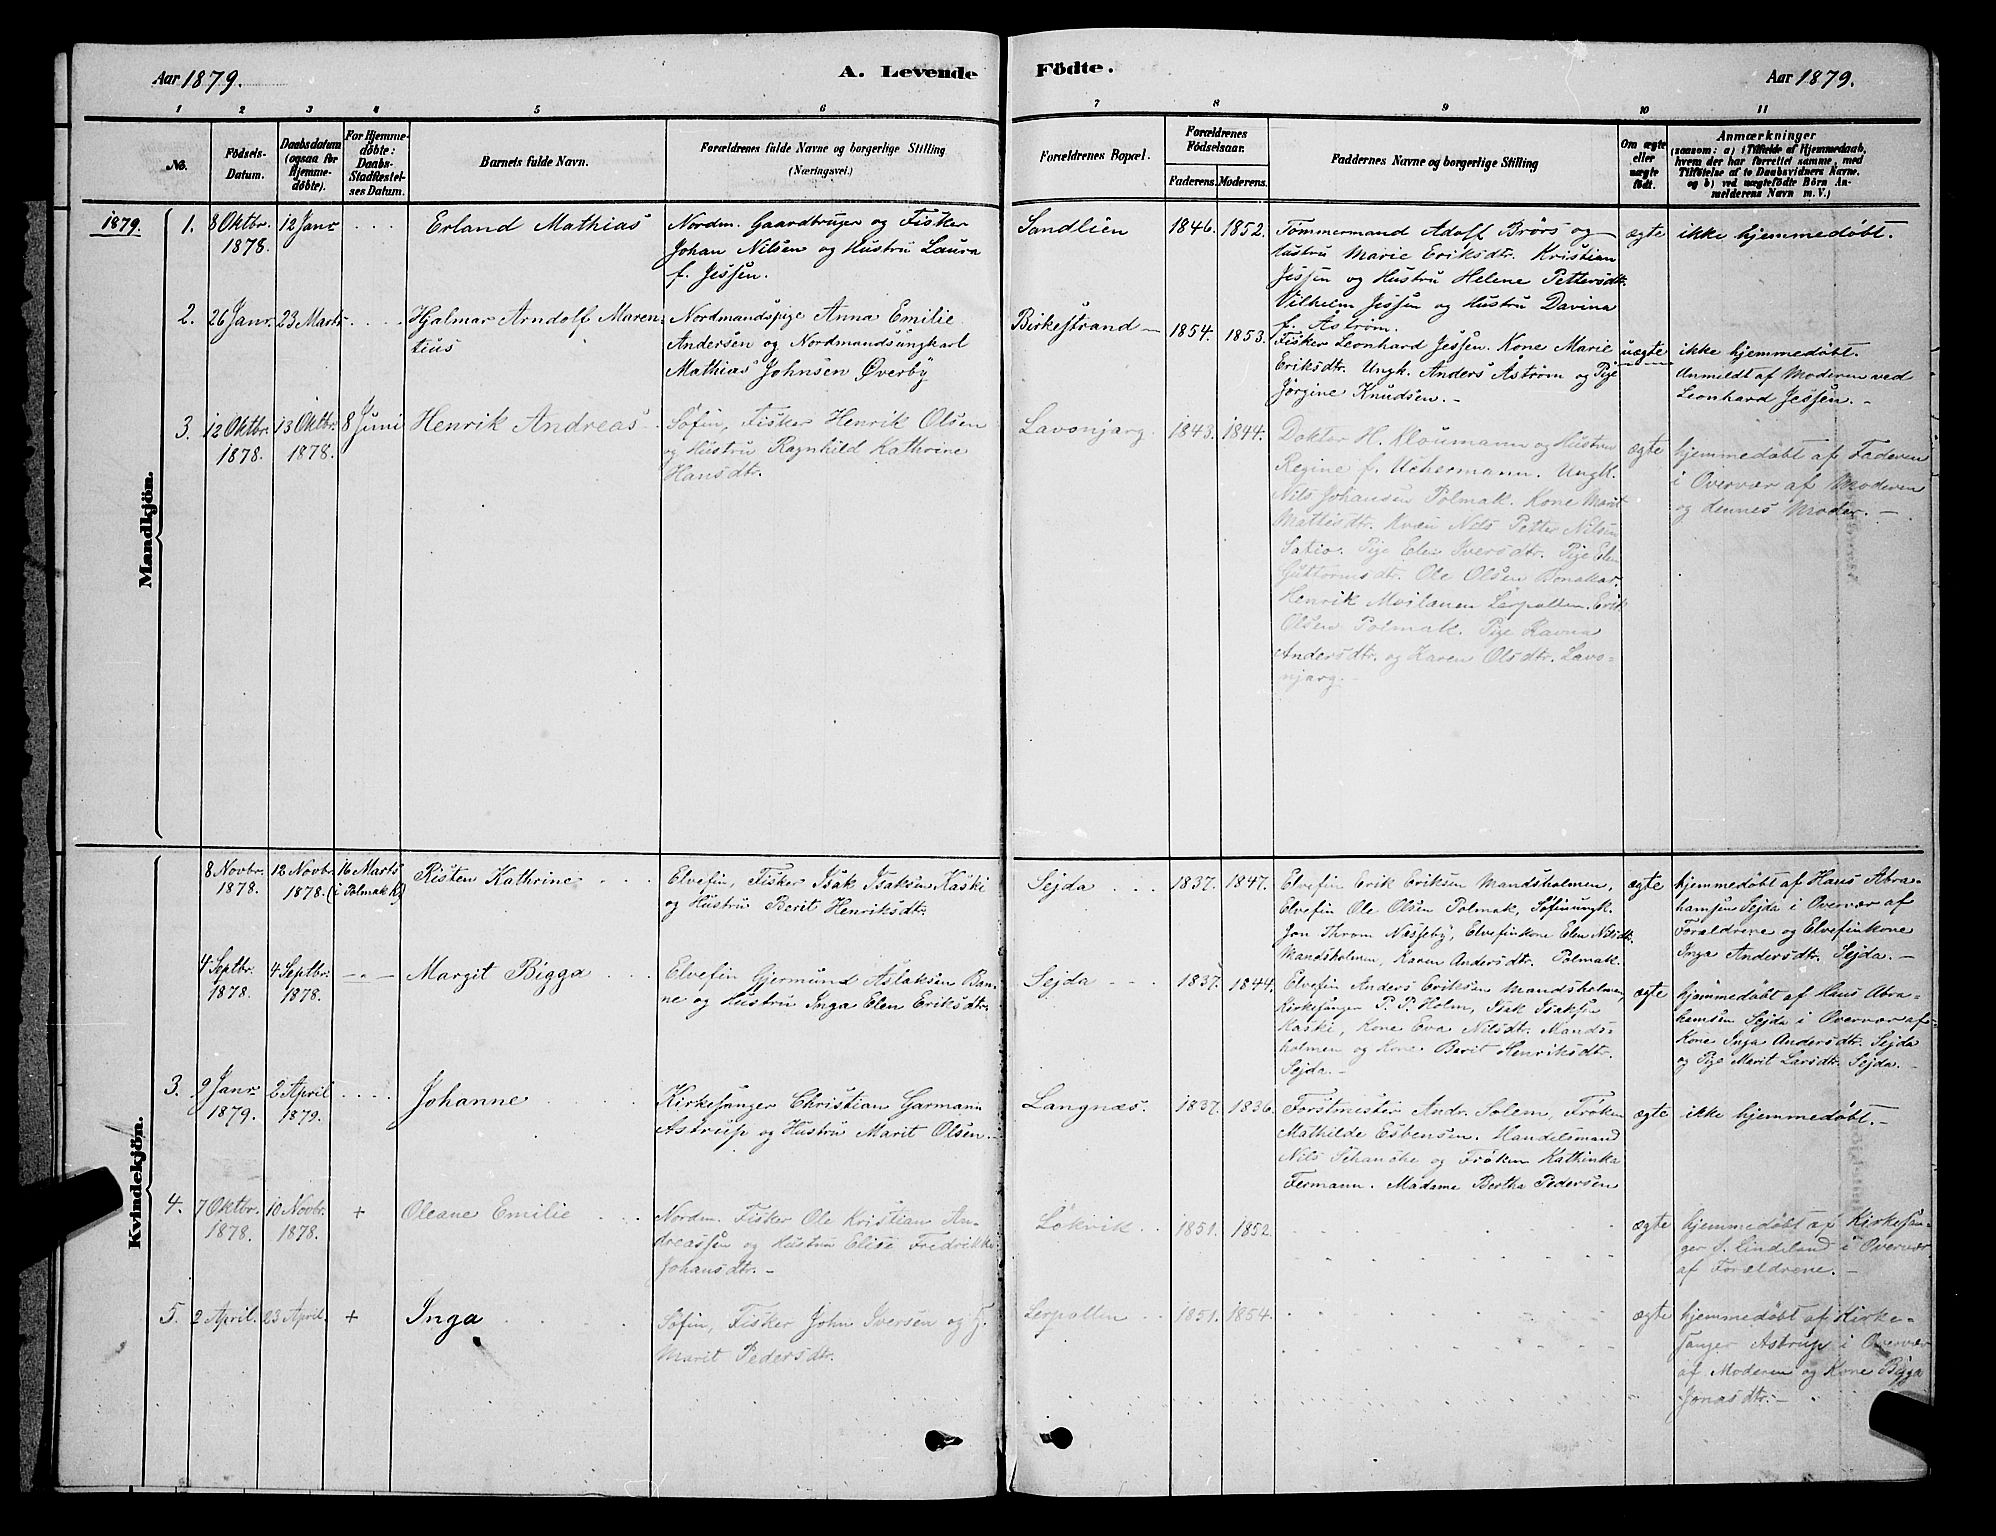 Aar 1879.
A. Levende Födte.
Aar 1879.
1 2 3 4 5 6 7 8 9 10 11
No.
Födsels-
Datum.
Daabsdatum
(ogsaa for
Hjemme-
döbte).
For Hjemme-
döbte:
Daabs-
Stadfæstel-
ses Datum.
Barnets fulde Navn.
Forældrenes fulde Navne og borgerlige Stilling
(Næringsvei.)
Forældrenes Bopæl.
Forældrenes
Födselsaar.
Faderens. Moderens.
Faddernes Navne og borgerlige Stilling
Om ægte
eller
uægte
födt.
Anmærkninger
(saasom: a) i Tilfælde af Hjemmedaab,
hvem der har forrettet samme, med
Tilföielse af to Daabsvidners Navne,
og b) ved uægtefödte Börn An-
melderens Navn m. V.)
Mandkjön.
1879.
1.
8 Oktbr.
1878.
12 Janr.
Erland Mathias
Nordm. Gaardbruger og Fisker
Johan Nilsen og Hustru Laura
f. Jessen.
Sandlien
1846. 1852.
Tømmermand Adolf Brörs og
Hustru Marie Eriksdtr. Kristian
Jessen og Hustru Helene Pettersdtr.
Vilhelm Jessen og Hustru Davina
f. Åström.
ægte
ikke hjemmedøbt.
2.
26 Janr.
23 Marts
Hjalmar Arndolf Maren-
tius
Nordmandspige Anna Emilie
Andersen og Nordmandsungkarl
Mathias Johnsen Øverby
Birkestrand
1854. 1853.
Fisker Leonhard Jessen. Kone Marie
Eriksdtr. Ungk. Anders Åström og Pige
Jörgine Knudsen.
uægte
ikke hjemmedøbt.
Anmeldt af Moderen ved
Leonhard Jessen.
3.
12 Oktbr.
1878.
13 Oktbr.
1878.
8 Juni
Henrik Andreas
Søfin, Fisker Henrik Olsen
og Hustru Ragnhild Kathrine
Hansdtr.
Lavonjarg.
1843. 1844.
Doktor H. Kloumann og Hustru
Regine f. Uchermann. Ungk.
Nils Johansen Polmak. Kone Marit
Mattisdtr. Kvæn Nils Petter Nilsen
Satio. Pige Elen Iversdtr. Pige Elen
Guttormsdtr. Ole Olsen Bonakas.
Henrik Moilanen Lerpollen. Erik
Olsen Polmak. Pige Ravna
Andersdtr. og Karen Olsdtr. Lavo-
njarg.
ægte
hjemmedøbt af Faderen
i Overvær af Moderen
og dennes Moder.
Kvindekjön.
8 Novbr.
1878.
12 Novbr.
1878.
16 Marts
(i Polmak K.)
Risten Kathrine
Elvefin, Fisker Isak Isaksen Kaski
og Hustru Berit Henriksdtr.
Sejda
1837. 1847.
Elvefin Erik Eriksen Mandsholmen,
Elvefin Ole Olsen Polmak, Søfinungk.
Jon Throm Næsseby, Elvefinkone Elen Nilsdtr.
Mandsholmen, Karen Andersdtr. Polmak.
ægte
hjemmedøbt af Hans Abra-
hamsen Sejda i Overvær af
Forældrene og Elvefinkone
Inga Andersdtr. Sejda.
4 Septbr.
1878.
4 Septbr.
1878.
— " —
Margit Bigga
Elvefin Gjermund Aslaksen Ban-
ne og Hustru Inga Elen Eriksdtr.
Sejda
1837. 1844.
Elvefin Anders Eriksen Mandsholmen,
Kirkesanger P. P. Holm, Isak Isaksen
Kaski, Kone Eva Nilsdtr. Mands-
holmen og Kone Berit Henriksdtr.
Sejda.
ægte
hjemmedøbt af Hans Abra-
hamsen Sejda i Overvær af
Kone Inga Andersdtr. Sejda
og Pige Marit Larsdtr. Sejda.
3.
9 Janr.
1879.
2 April
1879.
Johanne
Kirkesanger Christian Garmann
Astrup og Hustru Marit Olsen.
Langnæs.
1837. 1836.
Forstmester Andr. Solem, Frøken
Mathilde Esbensen. Handelsmand
Nils Schanche og Frøken Kathinka
Fermann. Madame Bertha Pedersen
ægte
ikke hjemmedøbt.
4.
7 Oktbr.
1878.
10 Novbr.
1878.
+
Oleane Emilie
Nordm. Fisker Ole Kristian An-
dreassen og Hustru Elise Fredrikke
Johansdtr.
Løkvik
1851. 1852.
ægte
hjemmedøbt af Kirkesan-
ger S. Lindeland i Overvær
af Forældrene.
5.
2 April.
23 April.
+
Inga
Søfin, Fisker John Iversen og H.
Marit Pedersdtr.
Lerpollen
1851. 1854.
ægte
hjemmedøbt af Kirke-
sanger Astrup i Overvær
af Moderen og Kone Bigga
Jonasdtr.